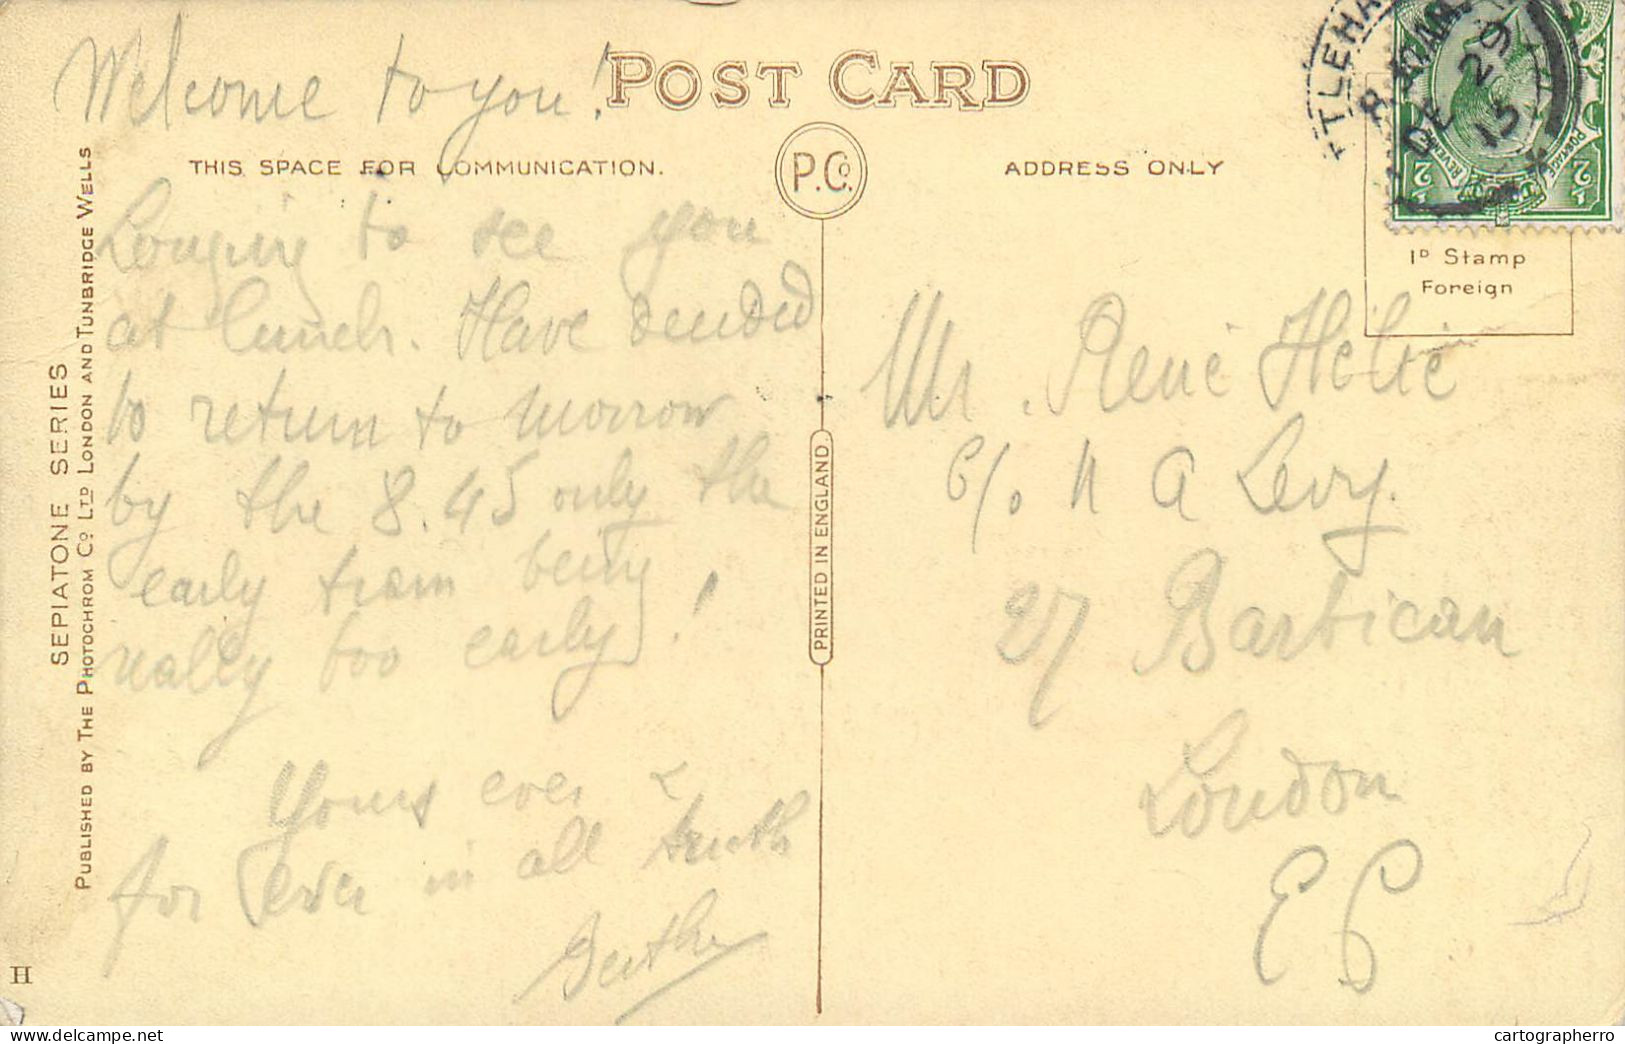 Welcome to you!
POST CARD
THIS SPACE FOR COMMUNICATION.
P.Co.
ADDRESS ONLY
Longing to see you
at lunch. Have decided
to return to morrow
by the 8.45 only the
early train being
really too early!
Yours ever &
for ever in all truth
Berthe
Mr. René Hélie
c/o N A Levy.
27 Barbican
London
E C
1D Stamp
Foreign
TTLEHA
8.30AM
DE 29
15
POSTAGE
REVENUE
½ ½
PRINTED IN ENGLAND
SEPIATONE SERIES
PUBLISHED BY THE PHOTOCHROM Co. LTD LONDON AND TUNBRIDGE WELLS
H
cartographerro